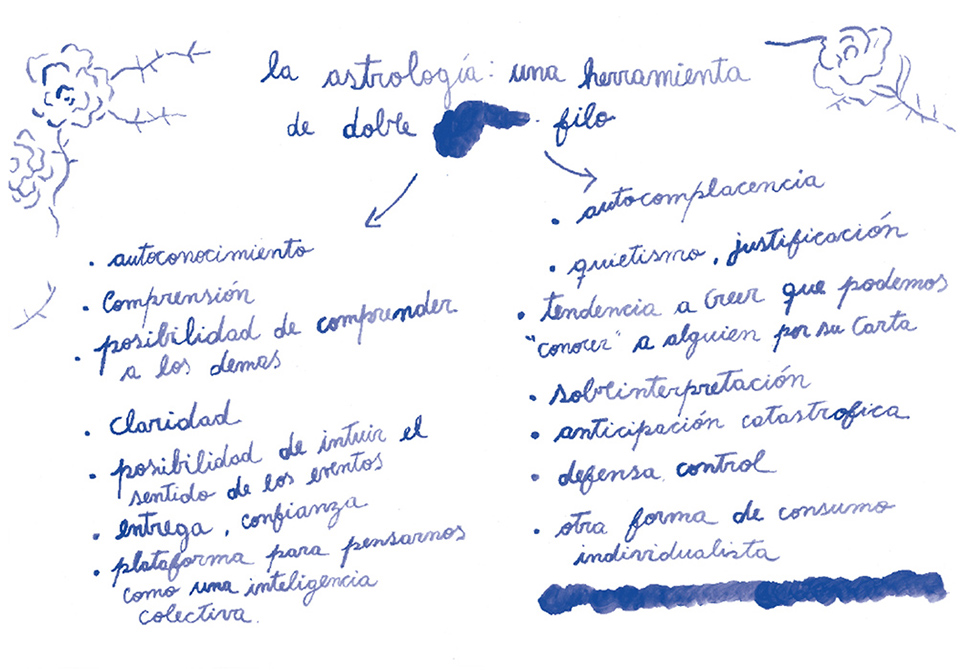 la astrología: una herramienta
de doble filo
• autoconocimiento
• Comprensión
• posibilidad de comprender
a los demas
• Claridad
• posibilidad de intuir el
sentido de los eventos
• entrega, confianza
• plataforma para pensarnos
como una inteligencia
colectiva.
• autocomplacencia
• quietismo, justificación
• tendencia a Creer que podemos
"conocer" a alguien por su Carta
• sobreinterpretación
• anticipación catastrofica
• defensa, control
• otra forma de consumo
individualista